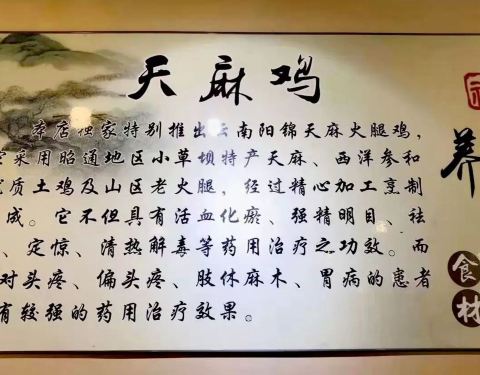 天麻鸡
本店独家特别推出云南阳锦天麻火腿鸡,
采用昭通地区小草坝特产天麻、西洋参和
质土鸡及山区老火腿,经过精心加工烹制
成。它不但具有活血化瘀、强精明目、祛
、定惊、清热解毒等药用治疗之功效。而
对头疼、偏头疼、肢体麻木、胃病的患者
有较强的药用治疗效果。
养
食材